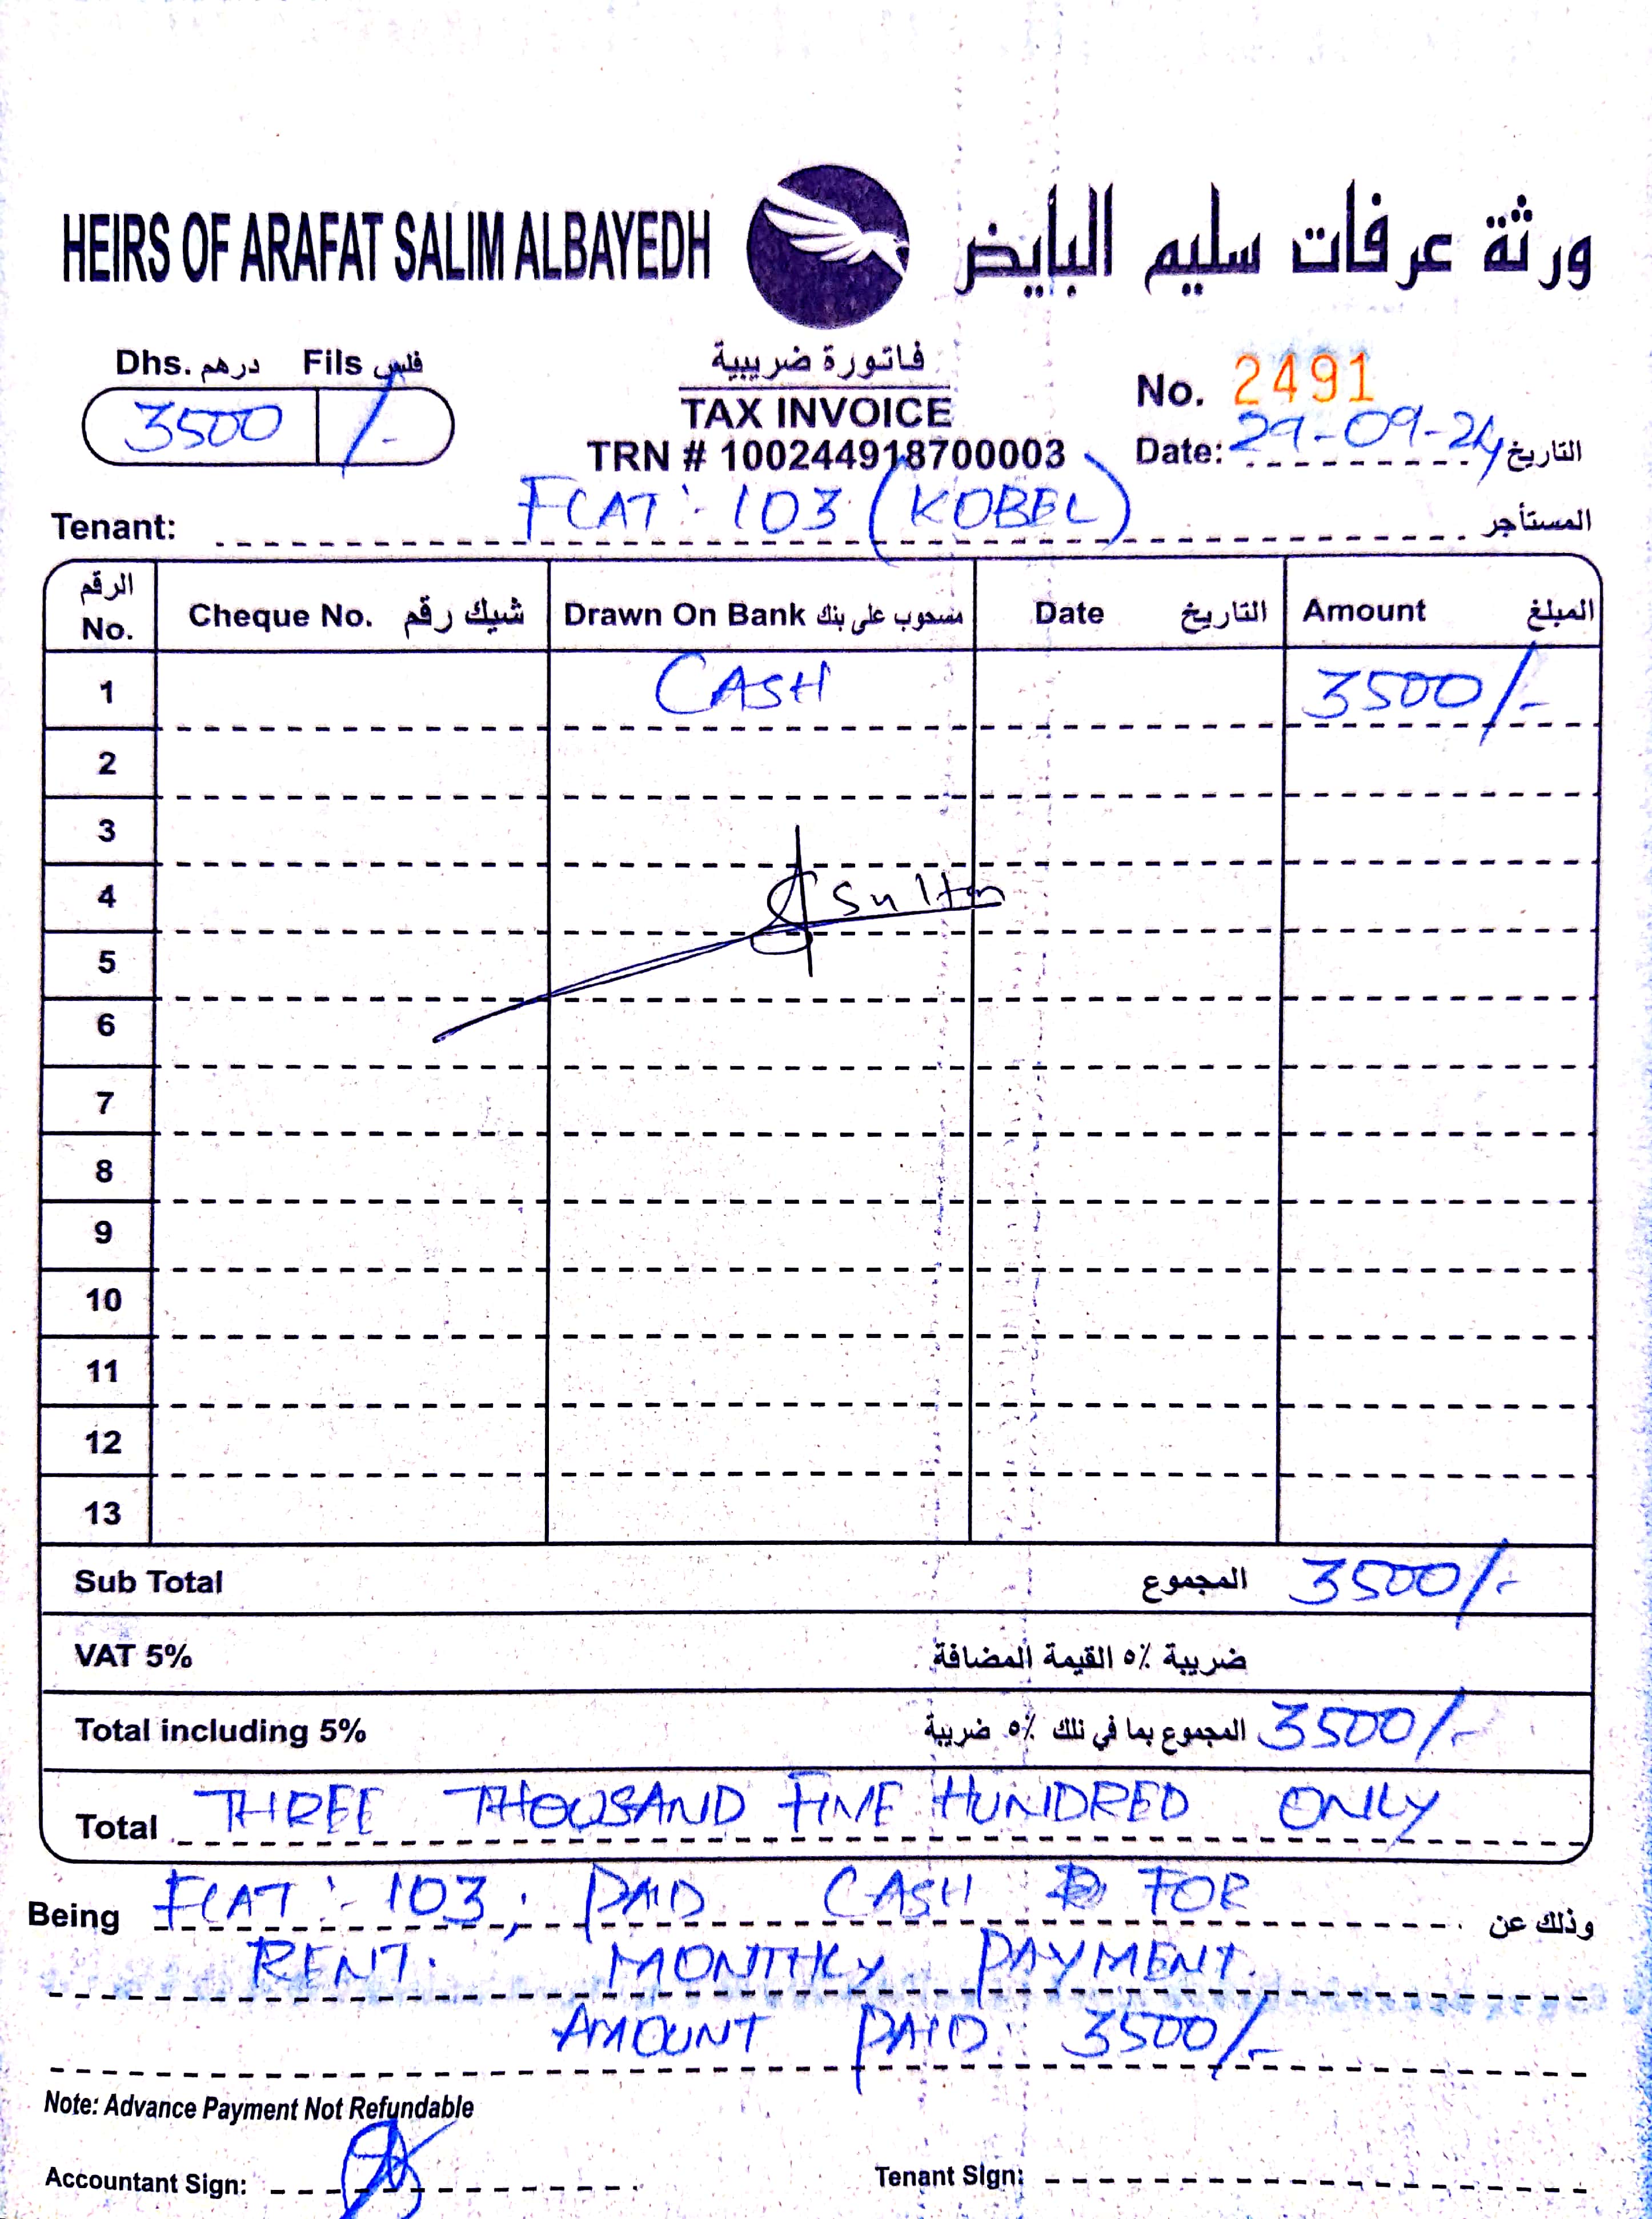 HEIRS OF ARAFAT SALIM ALBAYEDH ورثة عرفات سليم البأيض
Dhs. درهم Fils فلس
3500 /-
فاتورة ضريبية
TAX INVOICE
TRN # 100244918700003
No. 2491
Date: 29-09-24 التاريخ
Tenant: FLAT : 103 (KOBEL) المستأجر
الرقم No. Cheque No. شيك رقم Drawn On Bank مسحوب على بنك Date التاريخ Amount المبلغ
1 CASH 3500/-
2
3
4 Sultn
5
6
7
8
9
10
11
12
13
Sub Total المجموع 3500/-
VAT 5% ضريبة ٥٪ القيمة المضافة
Total including 5% المجموع بما في ذلك ٥٪ ضريبة 3500/-
Total THREE THOUSAND FIVE HUNDRED ONLY
Being FLAT :- 103, PAID CASH FOR وذلك عن
RENT. MONTHLY PAYMENT.
AMOUNT PAID : 3500/-
Note: Advance Payment Not Refundable
Accountant Sign: Tenant Sign: